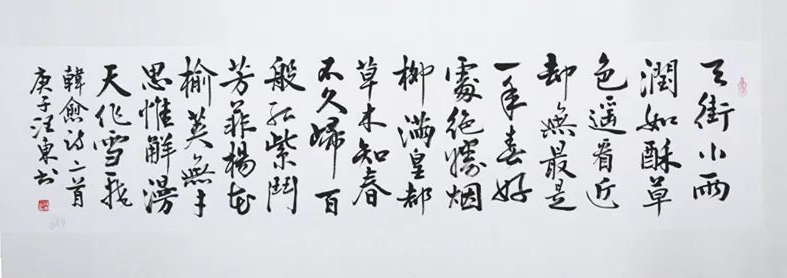 天街小雨
潤如酥草
色遥看近
却無最是
一年春好
處絕勝烟
柳滿皇都
草木知春
不久歸百
般红紫鬥
芳菲楊花
榆荚無才
思惟解漫
天作雪飛
韓愈诗二首
庚子汪東书